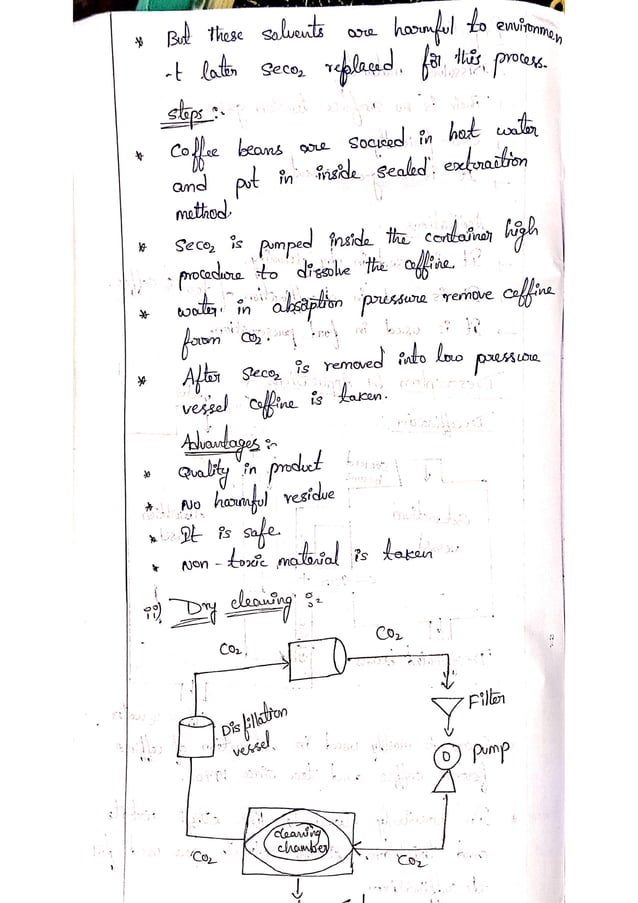 * But these solvents are harmful to environmen
-t later SCCO2 replaced for this process.
Steps :-
* Coffee beans are socked in hot water
and put in inside sealed extraction
method.
* SCCO2 is pumped inside the container high
procedure to dissolve the caffine.
* water in absaption pressure remove caffine
from CO2.
* After SCCO2 is removed into low pressure
vessel caffine is taken.
Advantages :-
* Quality in product
* No harmful residue
* It is safe.
* Non-toxic material is taken
ii) Dry cleaning :-
CO2
CO2
Filter
Distillation
vessel
pump
cleaning
chamber
CO2
CO2